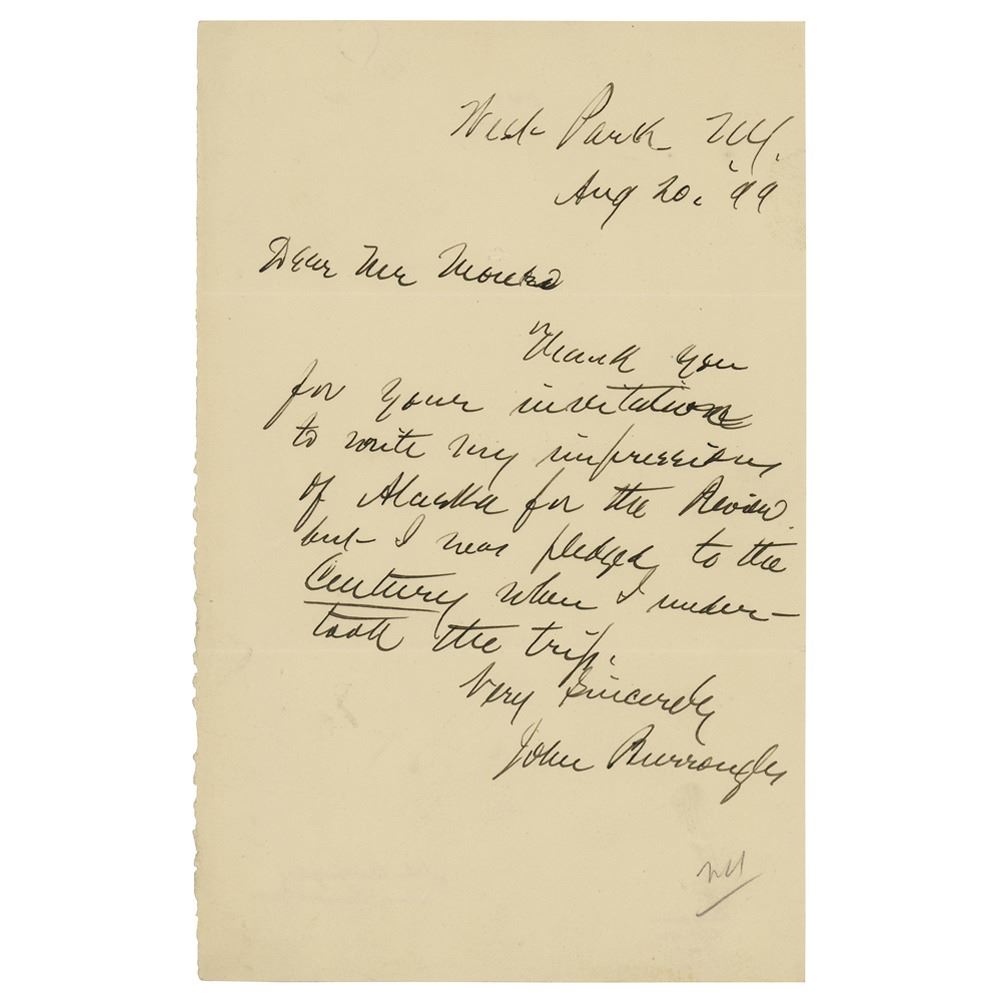 West Park N.Y.
Aug 20, '99
Dear Mr Munro
Thank you
for your invitation
to write my impressions
of Alaska for the Review
but I was pledged to the
Century when I under-
took the trip.
Very Sincerely
John Burroughs